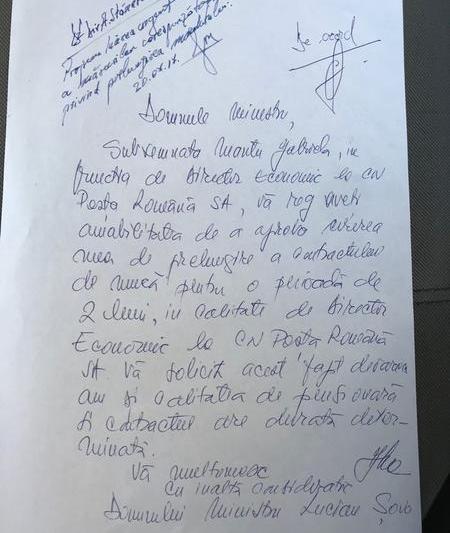 privind prelungirea mandatului.
26.07.17.
De acord
Domnule Ministru,
Subsemnata Mantu Gabriela, în
funcția de Director Economic la CN
Poșta Română SA, vă rog aveți
amabilitatea de a aproba cererea
mea de prelungire a contractului
de muncă pentru o perioadă de
2 luni, în calitate de Director
Economic la CN Poșta Română
SA. Vă solicit acest fapt deoarece
am și calitatea de pensionară
și contractul are durată deter-
minată.
Vă mulțumesc
Cu înaltă considerație
Domnului Ministru Lucian Șova